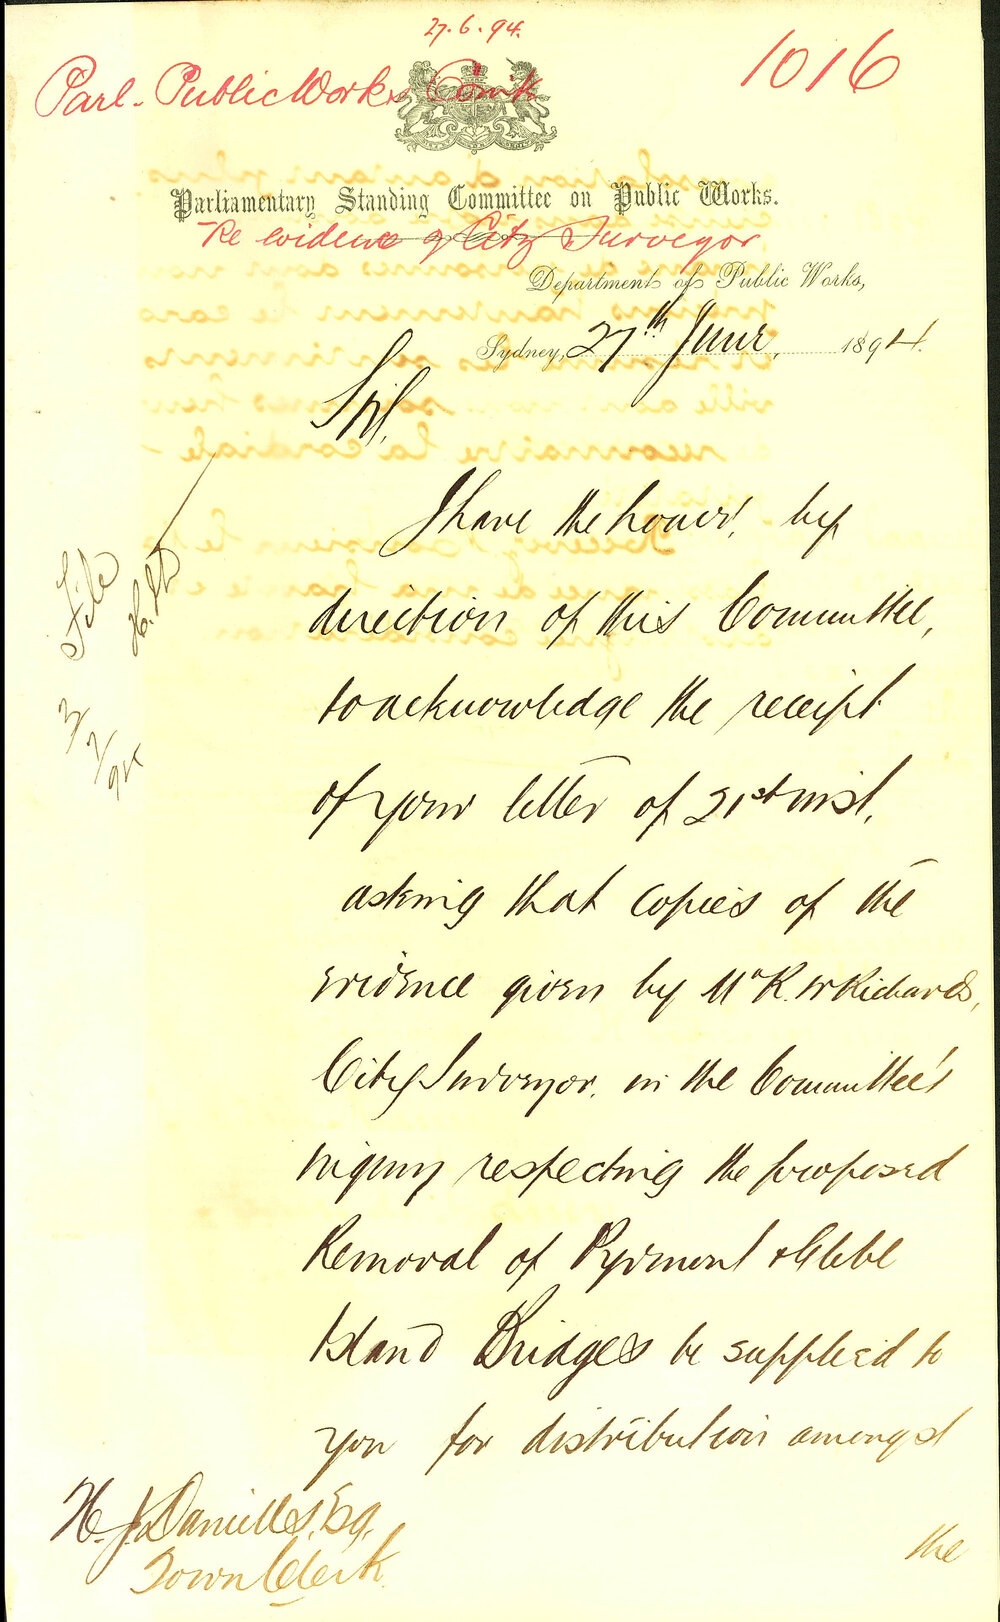 27.6.94.
1016
Parl. Public Works Comte
Parliamentary Standing Committee on Public Works.
Re evidence of City Surveyor
Department of Public Works,
Sydney, 27th June, 1894.
Sir,
I have the honor, by
direction of this Committee,
to acknowledge the receipt
of your letter of 21st inst,
asking that copies of the
evidence given by Mr R. W Richards,
City Surveyor, in the Committee's
inquiry respecting the proposed
Removal of Pyrmont & Glebe
Island Bridges be supplied to
you for distribution amongst
the
File
3/7/94
H. J. Daniells, Esq,
Town Clerk.